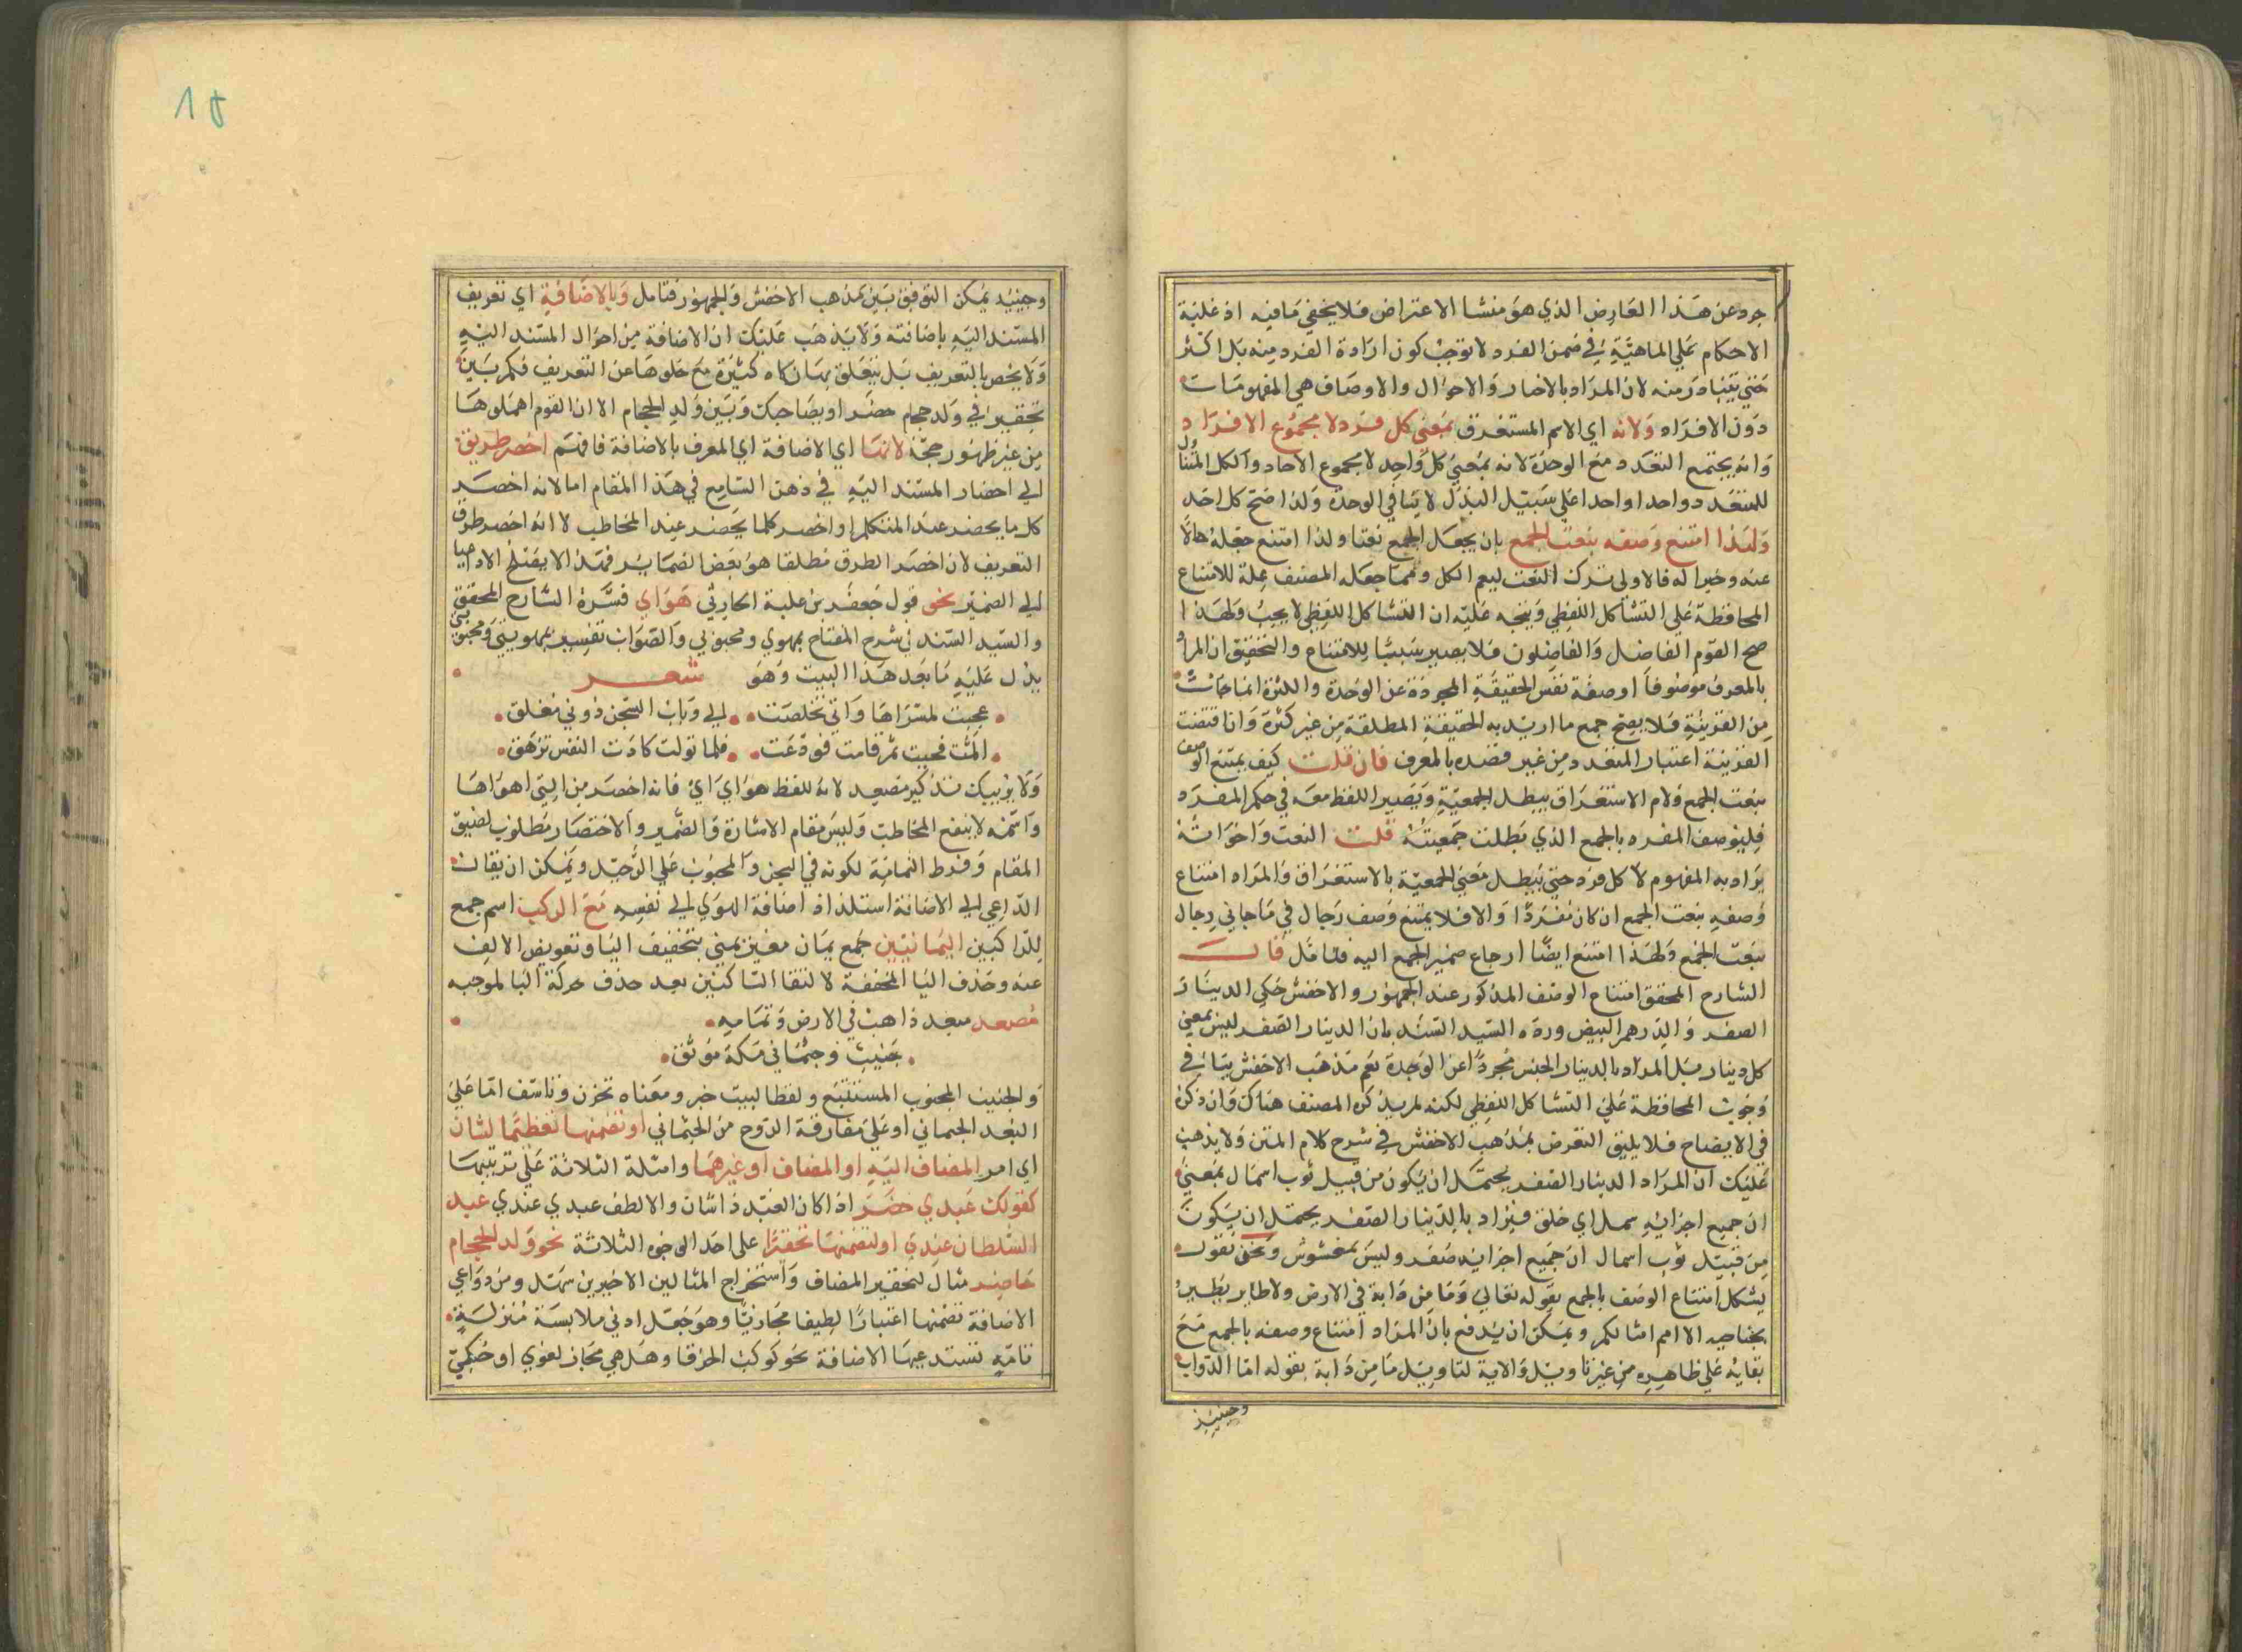 جرد عن هذا العارض الذي هو منشا الاعتراض فلا يخفي مافيه اذ غلبة
الاحكام علي الماهيّةِ في ضمن الفرد لا توجب كون ارادة الفرد منه بل اكثر
حتي يتبادر منه لان المراد بالاخبار والاحوال والاوصاف هي المفهومات
دون الافراد ولانه اي الاسم المستغرق بمعني كل فرد لا مجموع الافراد
وانه يجتمع التعدد مع الوحدة لانه بمعني كل واحد لا مجموع الاحاد والكل المتناول
للمتعدد واحدا واحدا علي سبيل البدل لا ينافي الوحدة ولذا صح كل احد
ولهذا امتنع وصفه بنعت الجمع بان يجعل الجمع نعتا ولذا امتنع جعله حالاً
عنه وخبرا له فالاولى ترك النعت ليعم الكل ومما جعله المصنف علة للامتناع
المحافظة علي التشاكل اللفظي ويتجه عليه ان التشاكل اللفظي لا يجب ولهذا
صح القوم الفاضل والفاضلون فلا يصير سببا للامتناع والتحقيق ان المراد
بالمعرف موصوفاً او صفة نفس الحقيقة المجردة عن الوحدة والكثرة انما جائت
من القرينة فلا يصح جمع ما اريد به الحقيقة المطلقة من غير كثرة وان اقتضت
القرينة اعتبار المتعدد من غير قصده بالمعرف فان قلت كيف يمتنع الوصف
بنعت الجمع ولام الاستغراق يبطل الجمعية ويصير اللفظ معه في حكم المفرد
فليوصف المفرد بالجمع الذي بطلت جمعيته قلت النعت واخواته
يراد به المفهوم لا كل فرد حتي يبطل معني الجمعية بالاستغراق والمراد امتناع
وصفه بنعت الجمع ان كان مفردًا والا فلا يمتنع وصف رجال في ما جاني رجال
بنعت الجمع ولهذا امتنع ايضًا ارجاع ضمير الجمع اليه فتامل قال
الشارح المحقق امتناع الوصف المذكور عند الجمهور والاخفش حكي الدينار
الصفر والدرهم البيض ورده السيد السند بان الدينار الصفر ليس بمعني
كل دينار بل المراد بالدينار الجنس مجردًا عن الوحدة نعم مذهب الاخفش ينافي
وجوب المحافظة علي التشاكل اللفظي لكنه لم يذكره المصنف هناك وان ذكره
في الايضاح فلا يليق التعرض بمذهب الاخفش في شرح كلام المتن ولا يذهب
عليك ان المراد الدينار الصفر يحتمل ان يكون من قبيل ثوب اسمال بمعني
ان جميع اجزائه سمل اي خلق فيراد بالدينار الصفر يحتمل ان يكون
من قبيل ثوب اسمال ان جميع اجزائه صفر وليس بمغشوش ونحن نقول
يشكل امتناع الوصف بالجمع بقوله تعالي وما من دابة في الارض ولا طاير يطير
بجناحيه الا امم امثالكم ويمكن ان يدفع بان المراد امتناع وصفه بالجمع مع
بقائه علي ظاهره من غير تاويل والاية لتاويل ما من دابة بقوله اما الدواب
وحينيذ
وحينيد يمكن التوفيق بين مذهب الاخفش والجمهور فتامل وبالاضافة اي تعريف
المسند اليه باضافته ولا يذهب عليك ان الاضافة من احوال المسند اليه
ولا يخص بالتعريف بل يتعلق بها نكاه كثيرة مع خلوها عن التعريف فكم بين
تحقير في ولد حجام حضر او بصاحبك وبين ولد الحجام الا ان القوم اهملوها
من غير ظهور حجة لانها اي الاضافة اي المعرف بالاضافة فافهم اخصر طريق
الي احضار المسند اليه في ذهن السامع في هذا المقام اما لانه اخصر
كل ما يحضر عند المتكلم او اخصر كلما يحضر عند المخاطب لا انه اخصر طرق
التعريف لان اخصر الطرق مطلقا هو بعض الضماير فهذا لا يقتضي الاوصيا
الي الضمير نحو قول جعفر بن علبة الحارثي هواي فسره الشارح المحقق
والسيد السند في شرح المفتاح بمهوي ومحبوبي والصواب تفسيره بمهويتي ومحبوبتي
يدل عليه ما بعد هذا البيت وهو شعر
عجبت لمسراها واني تخلصت الي وباب السجن دوني مغلق
المت فحيت ثم قامت فودعت فلما تولت كادت النفس تزهق
ولا يريبك تذكير مصعد لانه للفظ هواي اي فانه اخصر من التي اهواها
واسمه لا ينفع المخاطب وليس مقام الاشارة والضمير والاختصار مطلوب لضيق
المقام وفرط السامة لكونه في السجن والمحبوب علي الرحيل ويمكن ان يقال
الداعي الي الاضافة استلذاذ اضافة الهوي الي نفسه مع الركب اسم جمع
للراكبين اليمانيين جمع يمان مغير يمني بتخفيف اليا وتعويض الالف
عنه وحذف اليا المخففة لالتقا الساكنين بعد حذف حركة اليا لموجبه
مصعد مبعد ذاهب في الارض وتمامه
جنيب وجثماني بمكة موثق
والجنيب المجنوب المستتبع ولفظ البيت خبر ومعناه تحزن وتاسف اما علي
البعد الجسماني او علي مفارقة الروح من الجثماني او تضمنها تعظيما لشان
اي امر المضاف اليه او المضاف او غيرهما وامثلة الثلاثة علي ترتيبها
كقولك عبدي حضر اذا كان العبد ذا شان والالطف عبدي عندي عبد
السلطان عندي او لتضمنها تحقيرا على احد الوجوه الثلاثة نحو ولد الحجام
حاضر مثال لتحقير المضاف واستخراج المثالين الاخيرين سهل ومن دواعي
الاضافة تضمنها اعتبارًا لطيفا مجازيًّا وهو جعل ادني ملابسة منزلة
تامة تستدعيها الاضافة نحو كوكب الخرقا وهل هي مجاز لغوي او حكمي